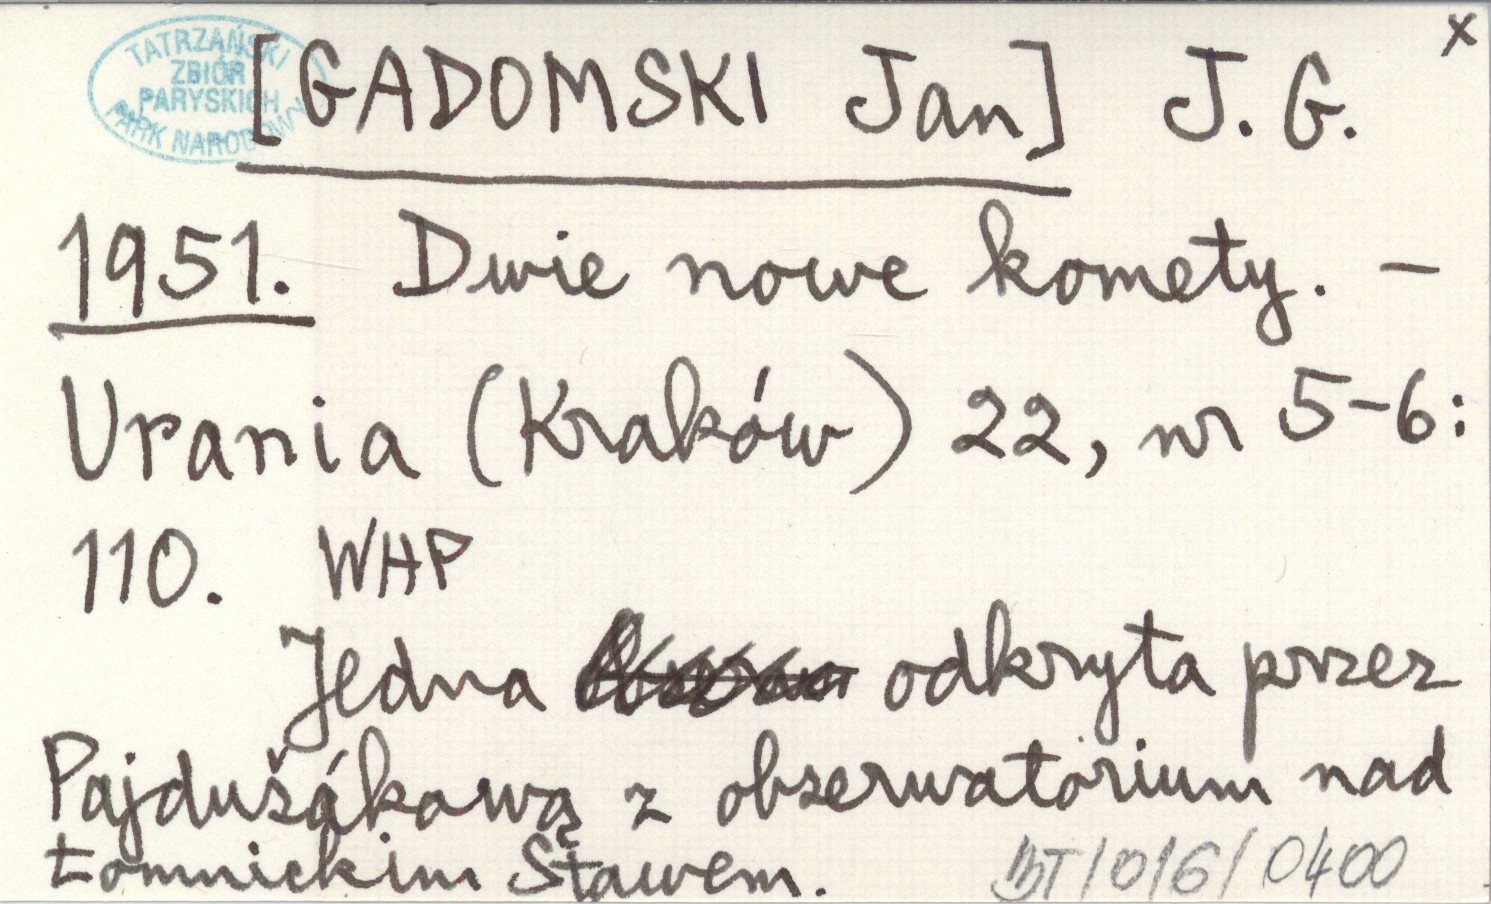 x
TATRZAŃSKI
ZBIÓR
PARYSKICH
PARK NARODOWY
[GADOMSKI Jan] J. G.
1951. Dwie nowe komety. –
Urania (Kraków) 22, nr 5-6:
110. WHP
Jedna odkryta przez
Pajdušákową z obserwatorium nad
Łomnickim Stawem.
BT/016/0400